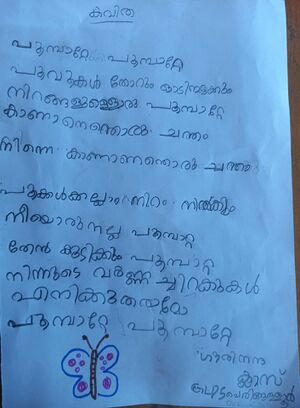 കവിത
പൂമ്പാറ്റേ പൂമ്പാറ്റേ
പൂവുകൾ തോറും
നിറങ്ങളുള്ളൊരു പൂമ്പാറ്റേ
കാണാനെന്തൊരു ചന്തം
നിന്നെ കാണാനന്തൊരു ചന്തം
പൂക്കൾക്കെല്ലാം നിറം
നീയൊരു നല്ല പൂമ്പാറ്റ
തേൻ കുടിക്കും പൂമ്പാറ്റ
നിന്നുടെ വർണ്ണ ചിറകുകൾ
എനിക്കുതരുമോ
പൂമ്പാറ്റേ പൂമ്പാറ്റേ
ക്ലാസ്